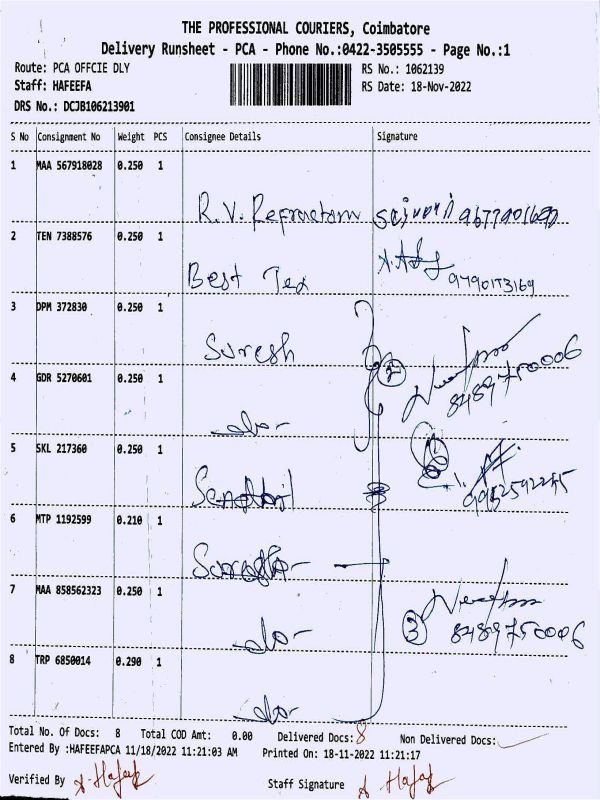 THE PROFESSIONAL COURIERS, Coimbatore
Delivery Runsheet - PCA - Phone No.:0422-3505555 - Page No.:1
Route: PCA OFFCIE DLY RS No.: 1062139
Staff: HAFEEFA RS Date: 18-Nov-2022
DRS No.: DCJB106213901
S No Consignment No Weight PCS Consignee Details Signature
1 MAA 567918028 0.250 1
R.V. Refractom
2 TEN 7388576 0.250 1
Best Tex 9790173169
3 DPM 372830 0.250 1
Suresh 2 8489750006
4 GDR 5270601 0.250 1
-do-
5 SKL 217360 0.250 1
Senthil 9952592245
6 MTP 1192599 0.210 1
7 MAA 858562323 0.250 1
-do- 3 8489750006
8 TRP 6850014 0.290 1
-do-
Total No. Of Docs: 8 Total COD Amt: 0.00 Delivered Docs: 8 Non Delivered Docs:
Entered By :HAFEEFAPCA 11/18/2022 11:21:03 AM Printed On: 18-11-2022 11:21:17
Verified By A. Hafeef Staff Signature A Hafeef